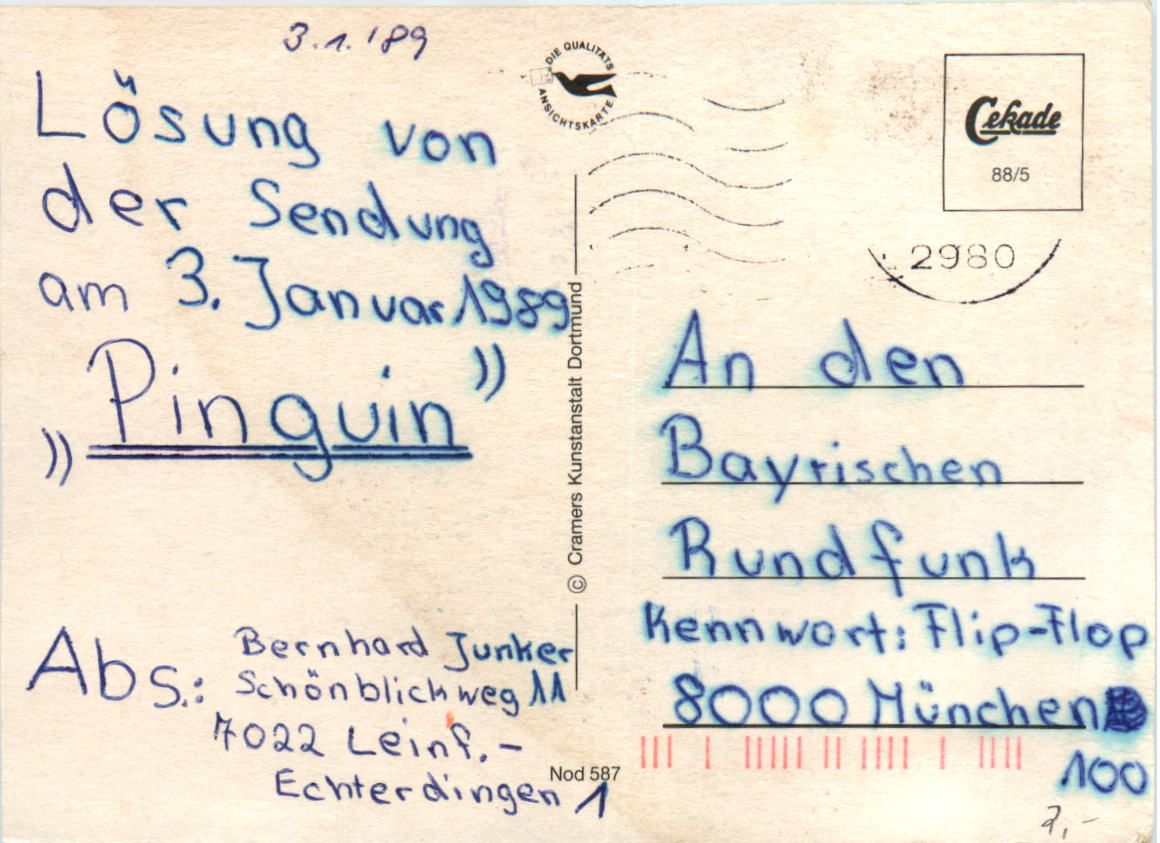 3.1.'89
Lösung von
der Sendung
am 3. Januar 1989
"Pinguin"
Abs.: Bernhard Junker
Schönblickweg 11
7022 Leinf.-
Echterdingen 1
DIE QUALITÄTS
ANSICHTSKARTE
© Cramers Kunstanstalt Dortmund
Nod 587
Cekade
88/5
2980
An den
Bayrischen
Rundfunk
Kennwort: Flip-Flop
8000 München
100
2,-